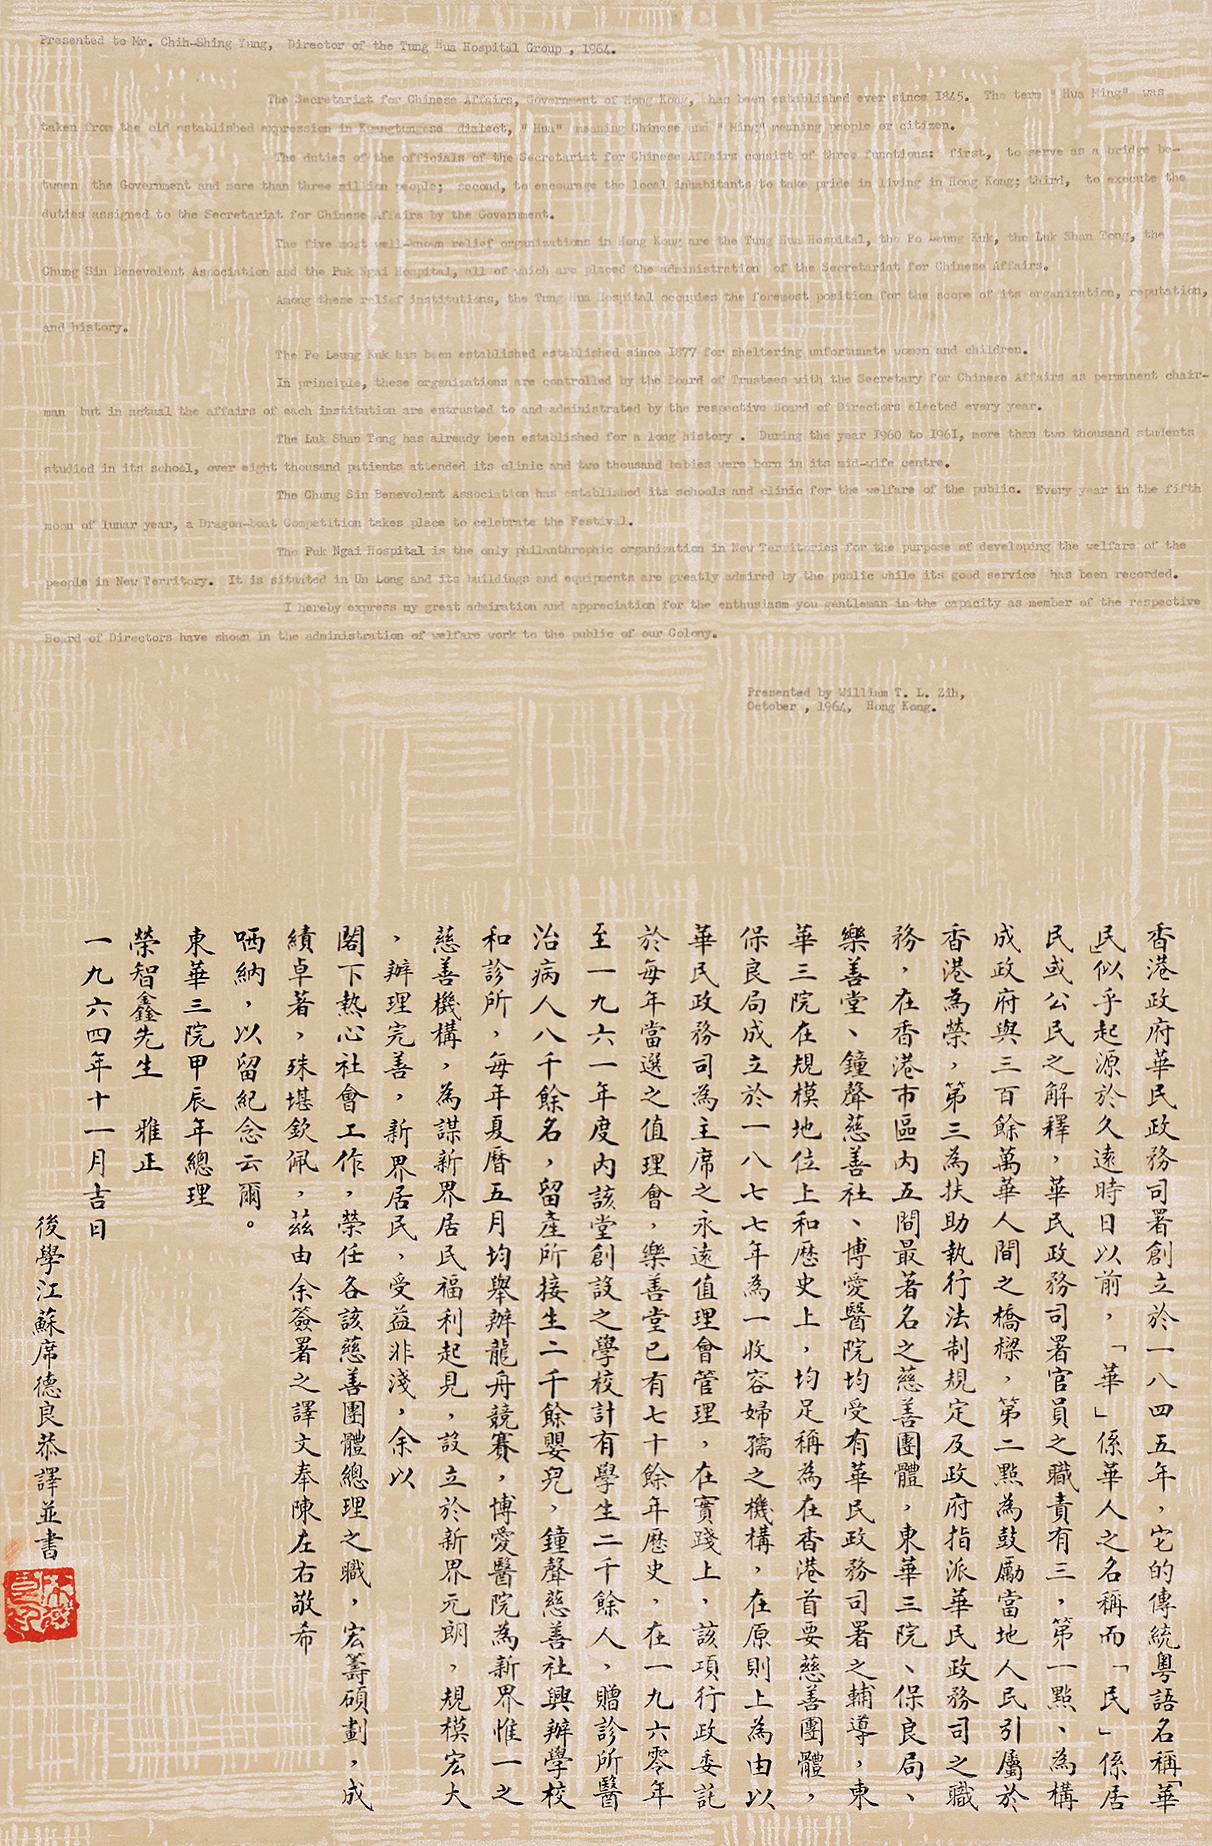 Presented to Mr. Chih-Shing Yung, Director of the Tung Hua Hospital Group , 1964.
The Secretariat for Chinese Affairs, Government of Hong Kong, has been established ever since 1845. The term " Hua Ming" was
taken from the old established expression in Kuangtungese dialect, " Hua" meaning Chinese and " Ming" meaning people or citizen.
The duties of the officials of the Secretariat for Chinese Affairs consist of three functions: first, to serve as a bridge be-
tween the Government and more than three million people; second, to encourage the local inhabitants to take pride in living in Hong Kong; third, to execute the
duties assigned to the Secretariat for Chinese Affairs by the Government.
The five most well-known relief organizations in Hong Kong are the Tung Hua Hospital, the Po Leung Kuk, the Luk Shan Tong, the
Chung Sin Benevolent Association and the Puk Ngai Hospital, all of which are placed the administration of the Secretariat for Chinese Affairs.
Among these relief institutions, the Tung Hua Hospital occupies the foremost position for the scope of its organization, reputation,
and history.
The Po Leung Kuk has been established established since 1877 for sheltering unfortunate women and children.
In principle, these organizations are controlled by the Board of Trustees with the Secretary for Chinese Affairs as permanent chair-
man but in actual the affairs of each institution are entrusted to and administrated by the respective Board of Directors elected every year.
The Luk Shan Tong has already been established for a long history . During the year 1960 to 1961, more than two thousand students
studied in its school, over eight thousand patients attended its clinic and two thousand babies were born in its mid-wife centre.
The Chung Sin Benevolent Association has established its schools and clinic for the welfare of the public. Every year in the fifth
moon of lunar year, a Dragon-boat Competition takes place to celebrate the Festival.
The Puk Ngai Hospital is the only philanthrophic organization in New Territories for the purpose of developing the welfare of the
people in New Territory. It is situated in Un Long and its buildings and equipments are greatly admired by the public while its good service has been recorded.
I hereby express my great admiration and appreciation for the enthusiasm you gentleman in the capacity as member of the respective
Board of Directors have shown in the administration of welfare work to the public of our Colony.
Presented by William T. L. Zih,
October , 1964, Hong Kong.
香港政府華民政務司署創立於一八四五年，它的傳統粵語名稱「華
民」似乎起源於久遠時日以前，「華」係華人之名稱而「民」係居
民或公民之解釋，華民政務司署官員之職責有三，第一點、為構
成政府與三百餘萬華人間之橋樑，第二點為鼓勵當地人民引屬於
香港為榮，第三為扶助執行法制規定及政府指派華民政務司之職
務，在香港市區內五間最著名之慈善團體，東華三院、保良局、
樂善堂、鐘聲慈善社、博愛醫院均受有華民政務司署之輔導，東
華三院在規模地位上和歷史上，均足稱為在香港首要慈善團體，
保良局成立於一八七七年為一收容婦孺之機構，在原則上為由以
華民政務司為主席之永遠值理會管理，在實踐上，該項行政委託
於每年當選之值理會，樂善堂已有七十餘年歷史，在一九六零年
至一九六一年度內該堂創設之學校計有學生二千餘人，贈診所醫
治病人八千餘名，留產所接生二千餘嬰兒，鐘聲慈善社興辦學校
和診所，每年夏曆五月均舉辦龍舟競賽，博愛醫院為新界惟一之
慈善機構，為謀新界居民福利起見，設立於新界元朗，規模宏大
，辦理完善，新界居民，受益非淺，余以
閣下熱心社會工作，榮任各該慈善團體總理之職，宏籌碩劃，成
績卓著，殊堪欽佩，茲由余簽署之譯文奉陳左右敬希
哂納，以留紀念云爾。
東華三院甲辰年總理
榮智鑫先生 雅正
一九六四年十一月吉日
後學江蘇席德良恭譯並書